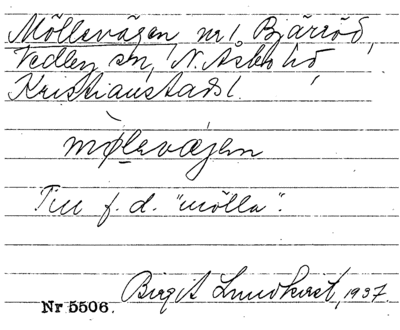 Möllevägen, nr 1 Bjärröd,
Vedby sn, N. Åsbo hd,
Kristianstads l.
mø̀levæjen
Till f. d. "mölla".
Birgit Lundkvist, 1937.
Nr 5506.